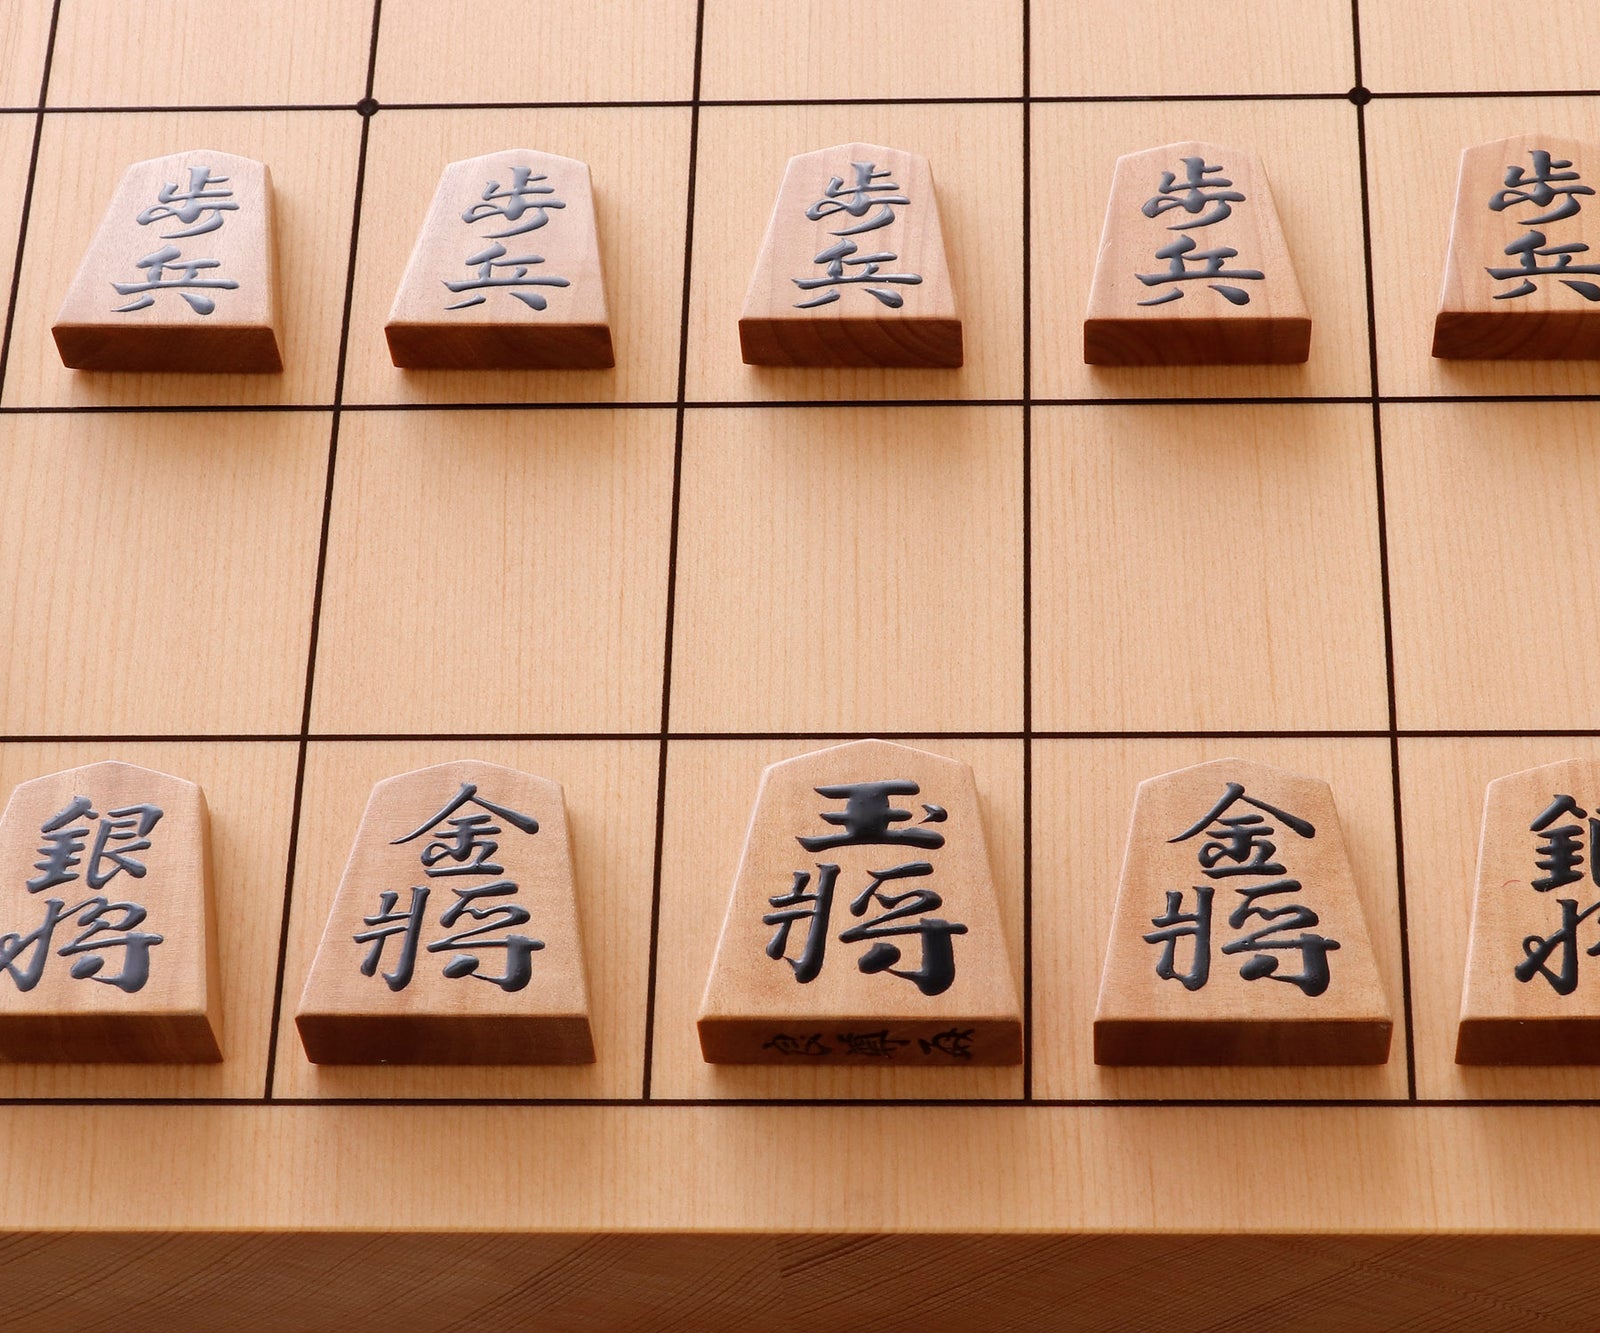 歩兵
歩兵
歩兵
歩兵
歩兵
銀将
金將
玉將
金將
銀